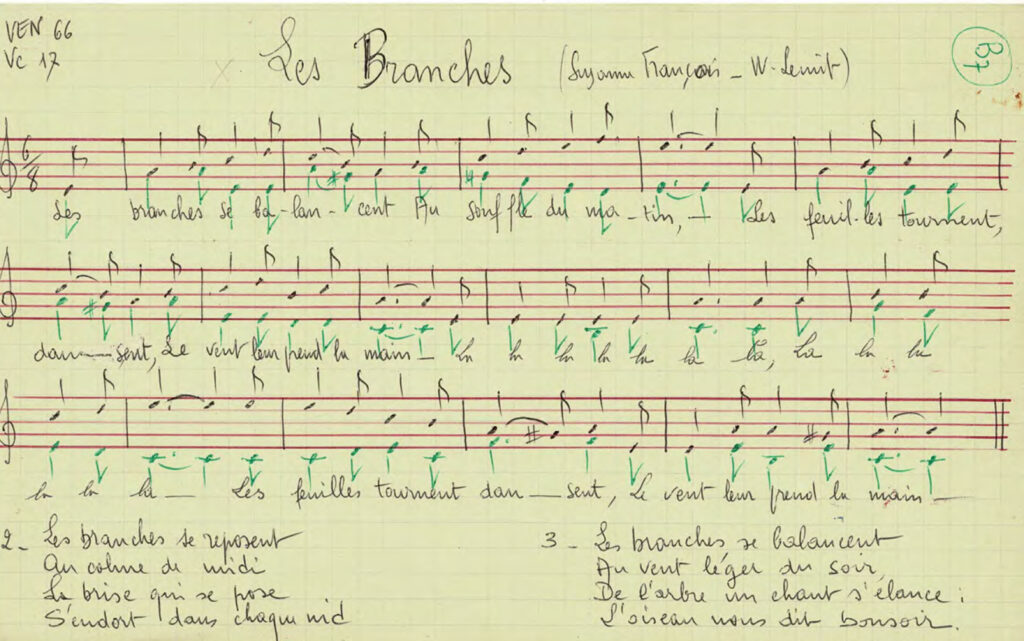 VEN 66
Vc 17
Les Branches
(Suzanne François - W. Lemit)
B7
6/8
Les branches se ba-lan-cent Au souffle du ma-tin, - Les feuil-les tournent,
dan-sent, Le vent leur prend la main - La la la la la la la, La la la
la la la - Les feuilles tournent dan-sent, Le vent leur prend la main -
2 - Les branches se reposent
Au calme de midi
La brise qui se pose
S'endort dans chaque nid
3 - Les branches se balancent
Au vent léger du soir,
De l'arbre un chant s'élance :
L'oiseau nous dit bonsoir.